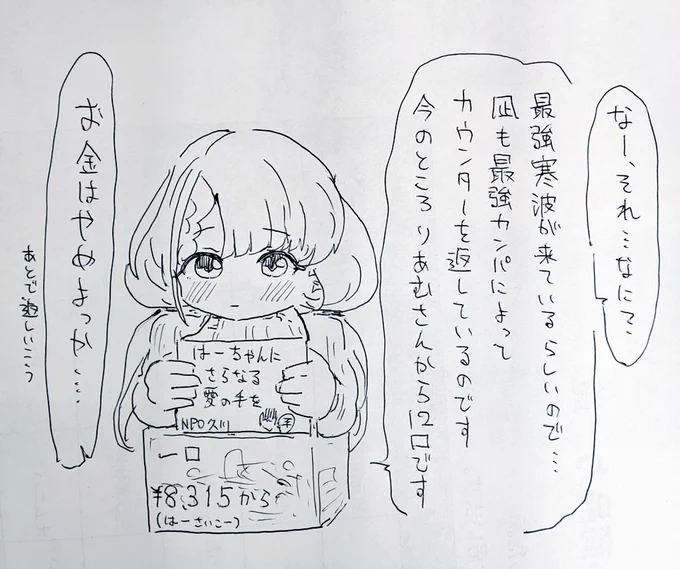 なー、それ…なに?
最強寒波が来ているらしいので…
凪も最強カンパによって
カウンターを返しているのです
今のところりあむさんから12口です
はーちゃんに
さらなる
愛の手を
NPO久川
一口
¥8,315から
(はーさいこー)
お金はやめよっか…
あとで返しいこう